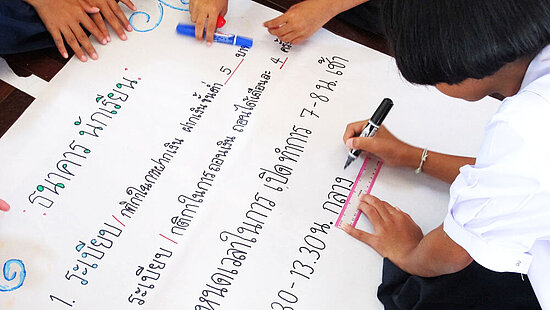 ธนาคาร นักเรียน
1. ระเบียบ/กติกาในการฝากเงิน ฝากเงินขั้นต่ำ 5 บาท
ระเบียบ / กติกาในการถอนเงิน ถอนได้เดือนละ 4 ครั้ง
หนดเวลาในการ เปิด ทำการ 7-8 น. เช้า
30-13.30 น. กลาง